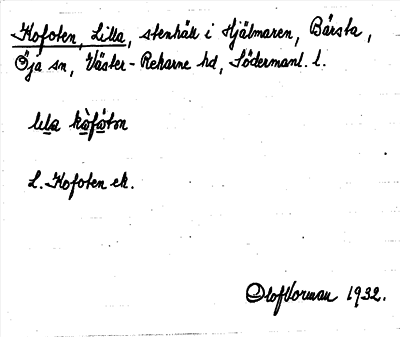 Kofoten, Lilla, stenhäll i Hjälmaren, Bärsta,
Öja sn, Väster-Rekarne hd, Södermanl. l.
lila kòfòtən
L. Kofoten ek.
Olof Norman 1932.